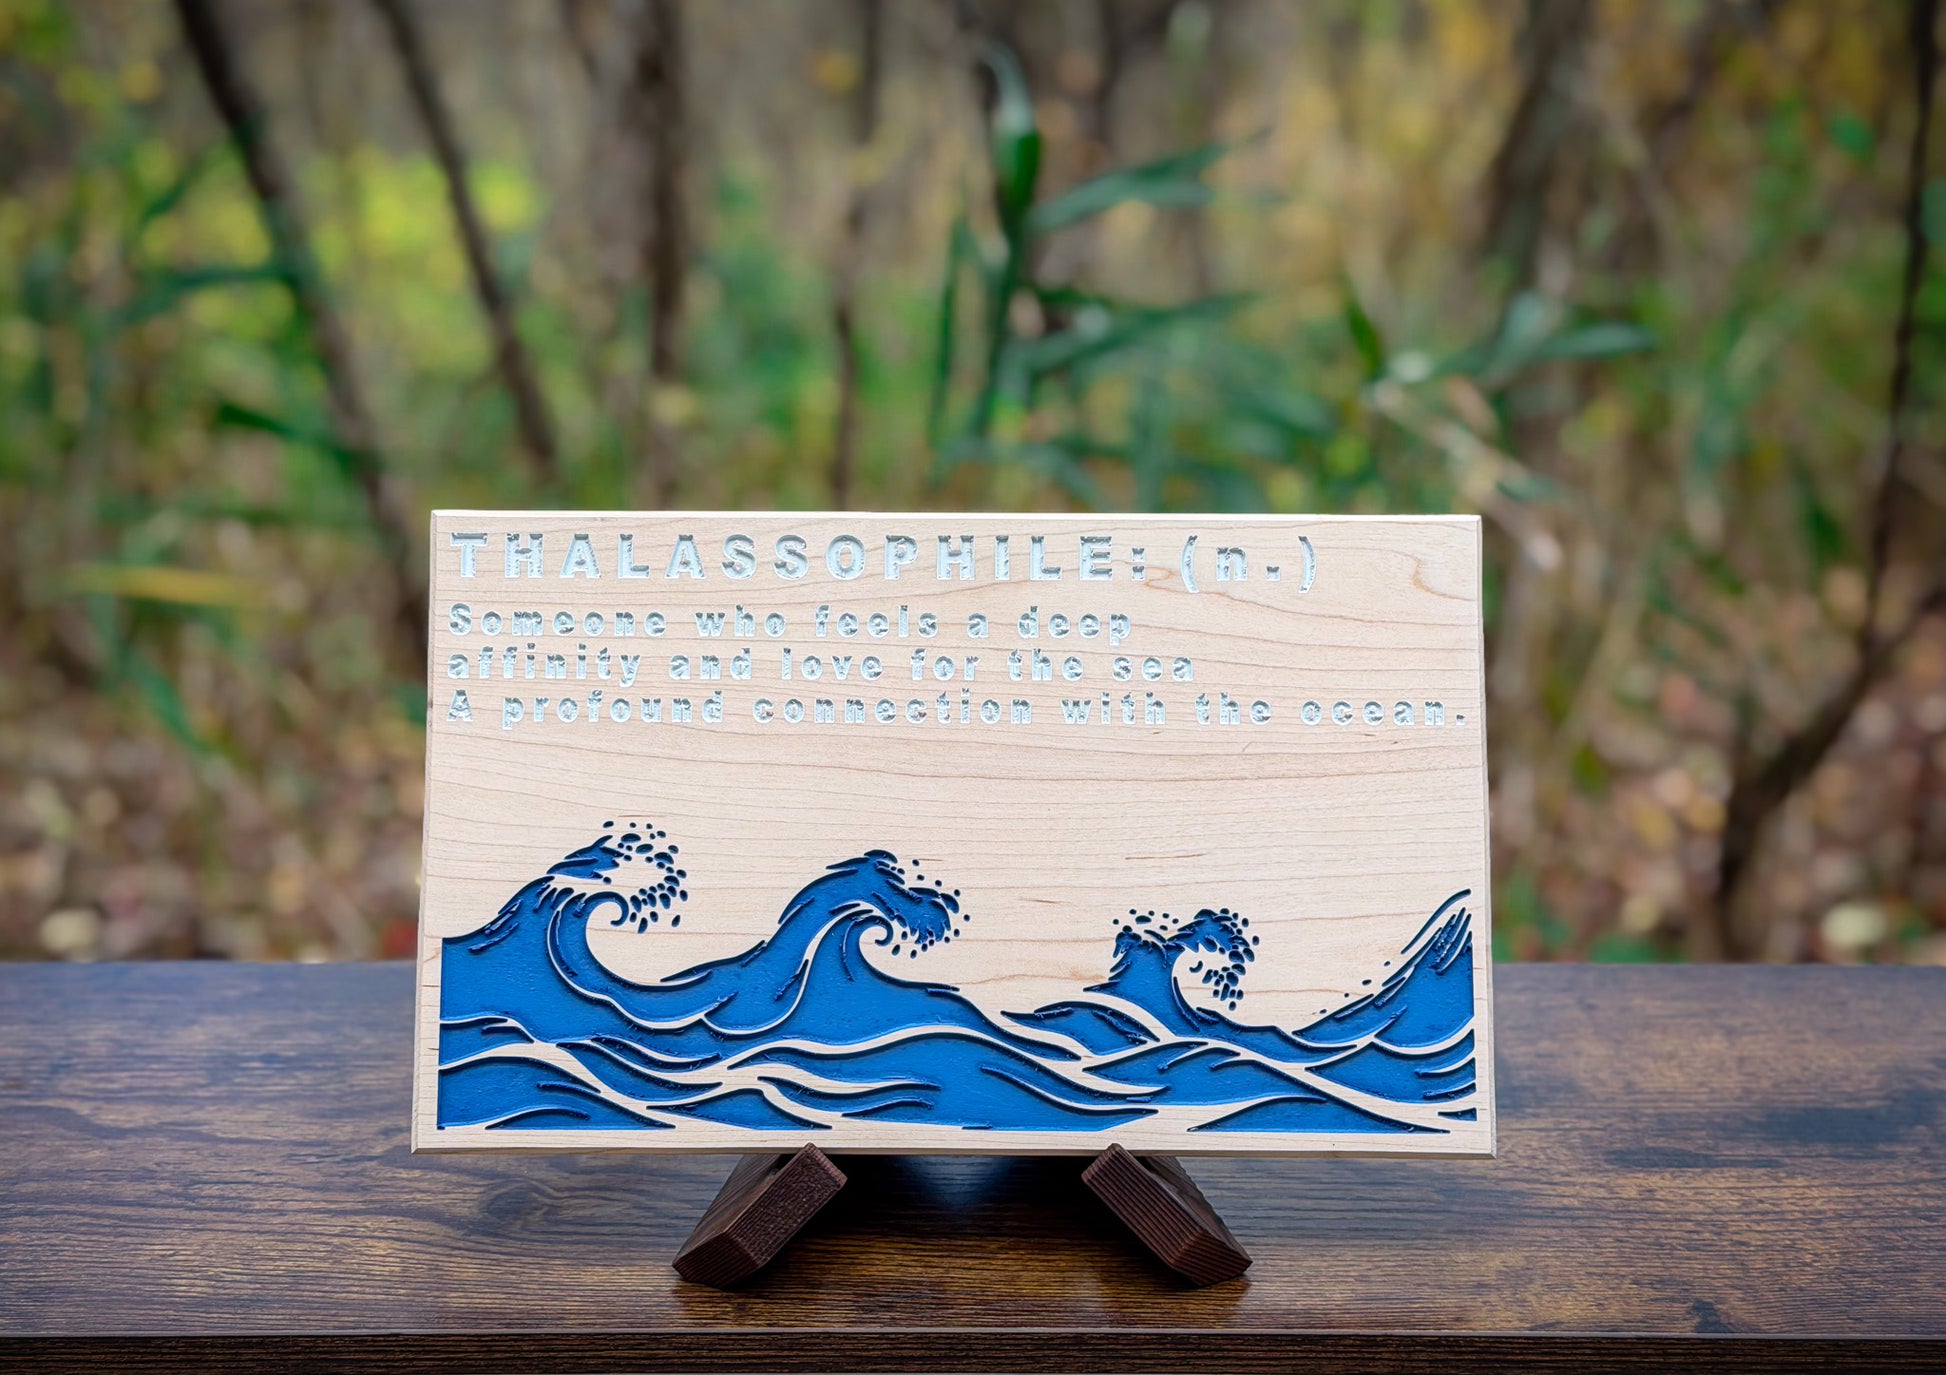 THALASSOPHILE: (n.)
Someone who feels a deep
affinity and love for the sea
A profound connection with the ocean.